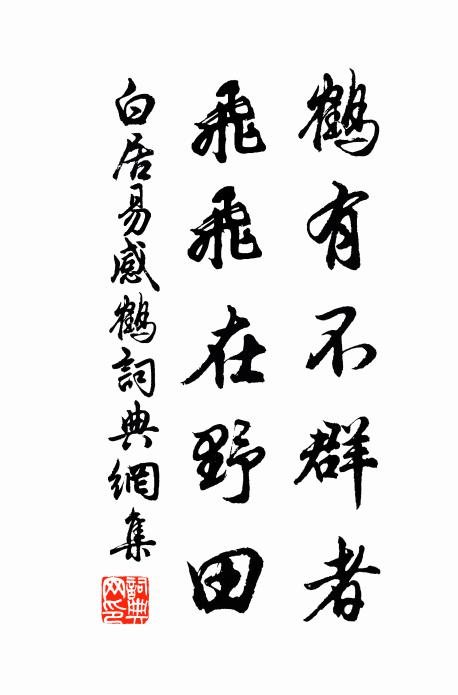 鶴有不群者
飛飛在野田
白居易感鶴詞典網集
詞典網印